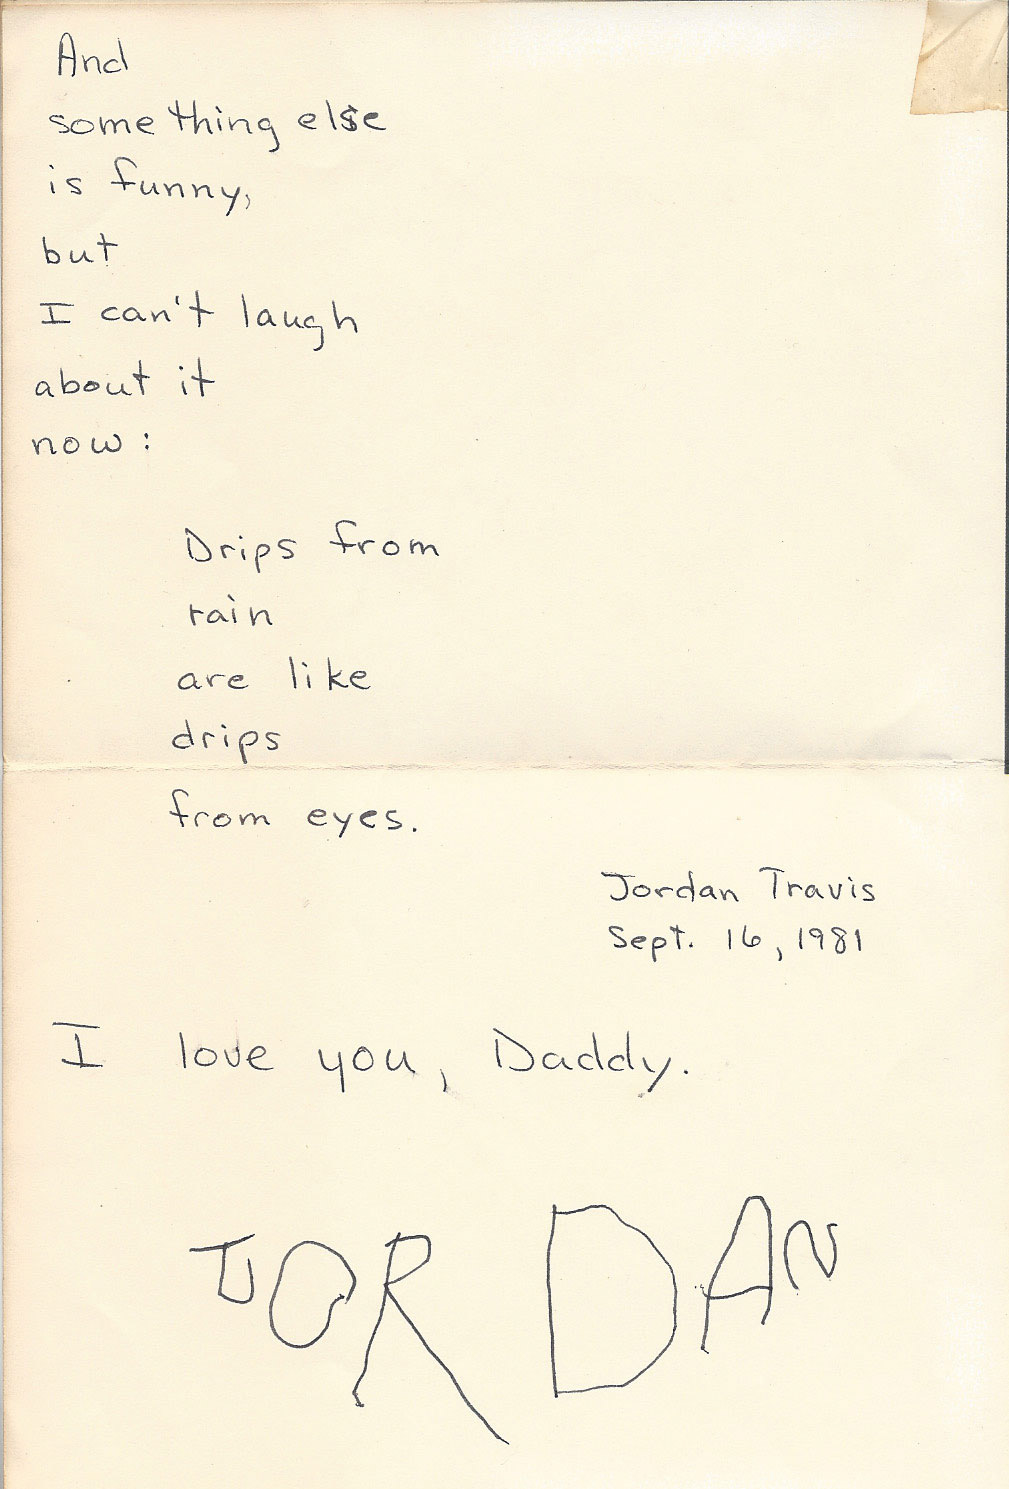 And
something else
is funny,
but
I can't laugh
about it
now:
Drips from
rain
are like
drips
from eyes.
Jordan Travis
Sept. 16, 1981
I love you, Daddy.
JORDAN